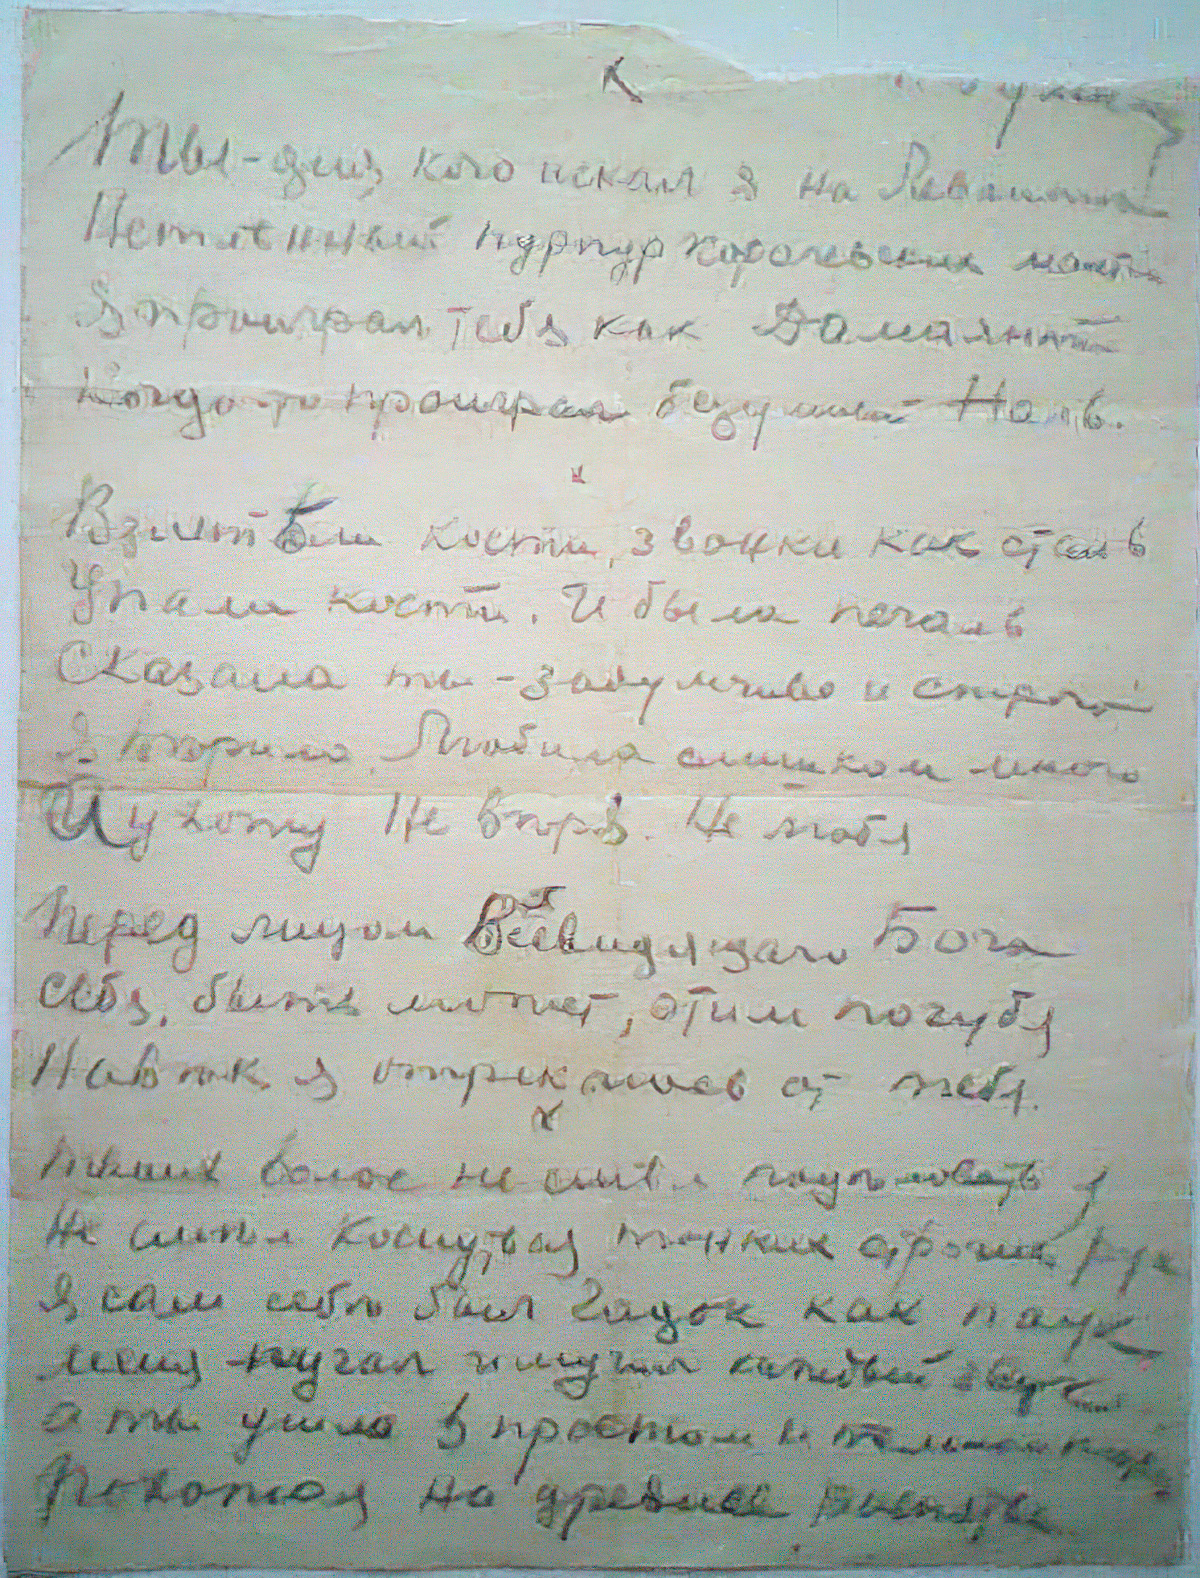 Ты - для кого искал я на Леванте
Нетлѣнный пурпур королевских мант
Я проиграл тебя как Дамаянти
Когда-то проиграл безумный Наль.
Взлетѣли кости, звонки как сталь
Упали кости. И была печаль
Сказала ты - задумчиво и строго
Я вѣрила. Любила слишком много
И ухожу Не вѣря. Не любя
Перед лицом Всевидящаго Бога
Себя, быть может, этим погубя
Навѣк я отреклась от тебя.
Твоих волос не смѣл поцѣловать я
Не смѣл коснуться тонких строгих рук
Я сам себѣ был гадок как паук
Меня пугал и мучил каждый звук
А ты ушла в простом и темном
Похожая на древнее Распятье